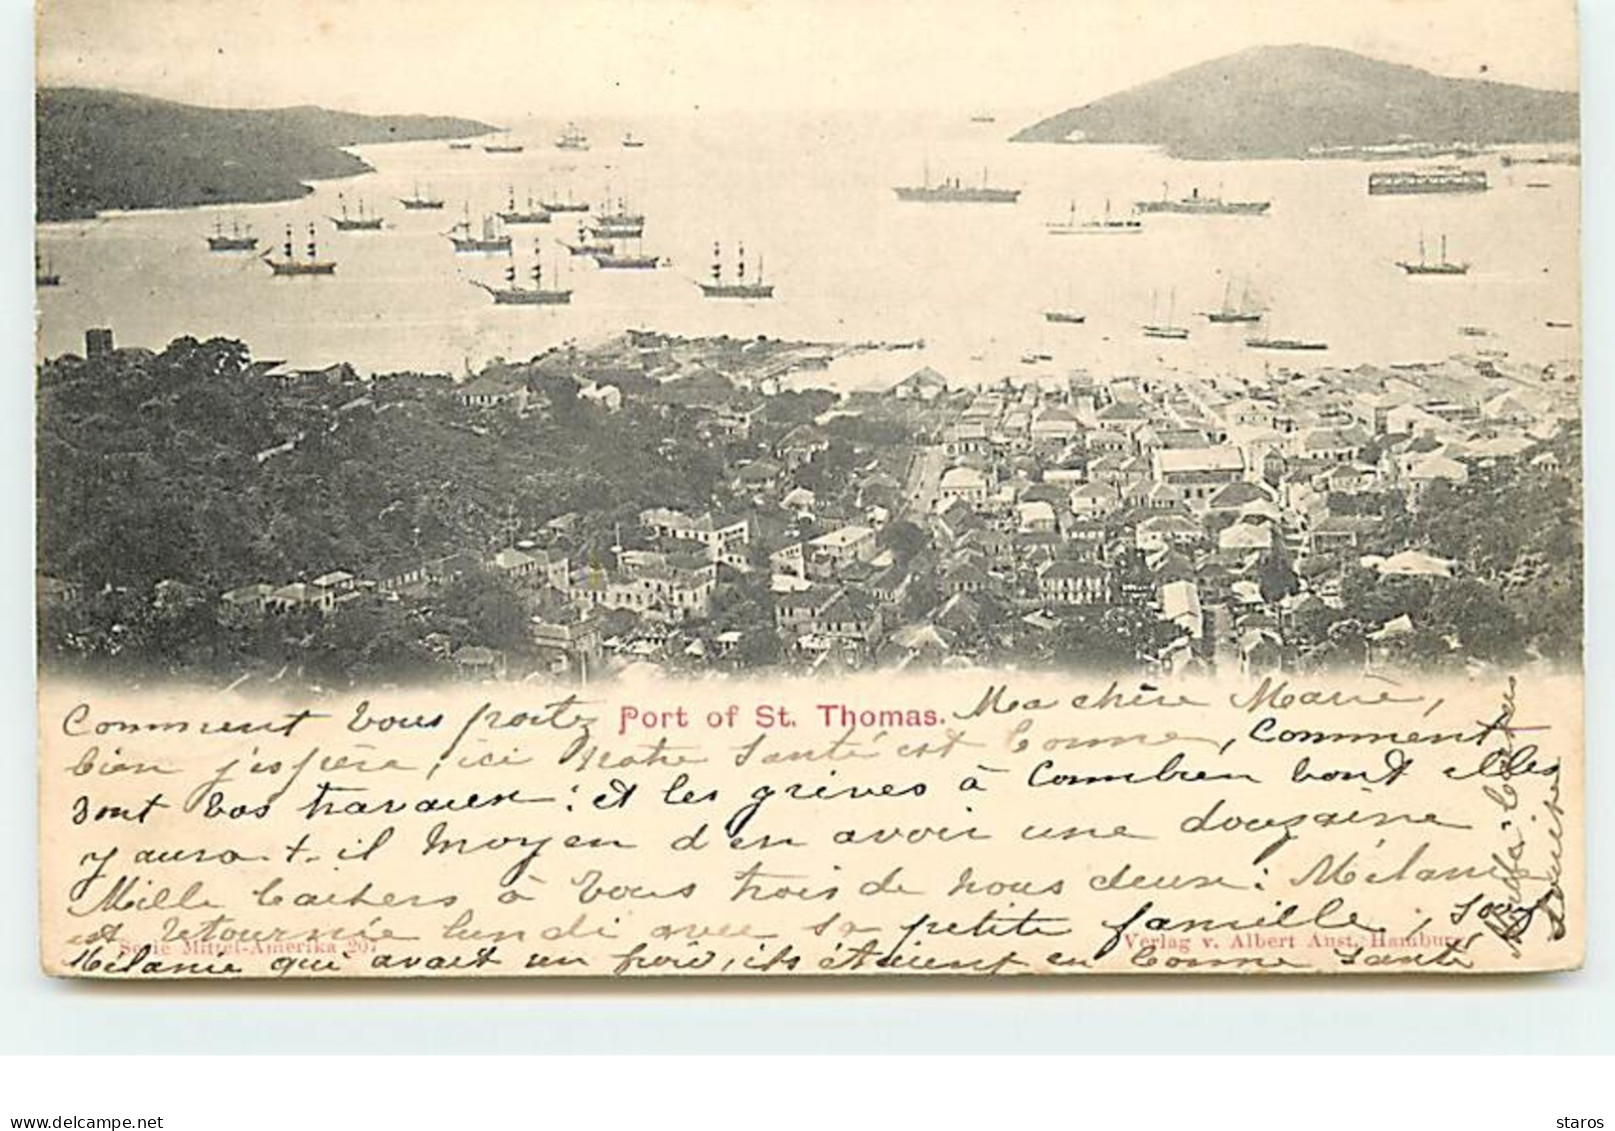 Ma chère Marie,
Comment vous portez
Port of St. Thomas.
bien j'espère, ici notre santé est bonne, Comment
sont vos travaux: et les grives à Commbien vont elles
y aura-t-il moyen d'en avoir une douzaine
Mille baisers à vous trois de nous deux: Mélanie
est retournée lundi avec sa petite famille,
Serie Mittel-Amerika 207
Verlag v. Albert Aust, Hamburg.
Mélanie qui avait un peu, ils étaient en bonne santé
Louise
delcampe.net
staros